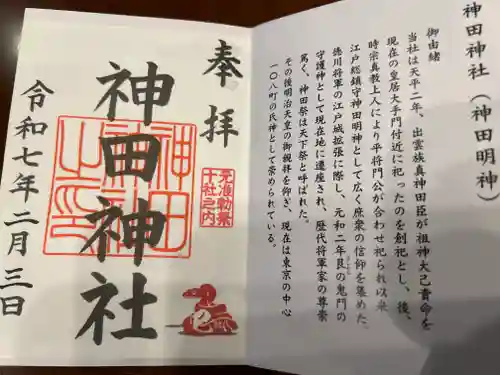 神田神社（神田明神）
御由緒
当社は天平二年、出雲族真神田臣が祖神大己貴命を
現在の皇居大手門付近に祀ったのを創祀とし、後、
時宗真教上人により平将門公が合わせ祀られ以来
江戸総鎮守神田明神として広く庶衆の信仰を集めた。
徳川将軍の江戸城拡張に際し、元和二年艮の鬼門の
守護神として現在地に遷座され、歴代将軍家の尊崇
篤く、神田祭は天下祭と呼ばれた。
その後明治天皇の御親拝を仰ぎ、現在は東京の中心
一〇八町の氏神として崇められている。
奉拝
准勅祭
十社之内
神田神社
神田
之印
令和七年二月三日